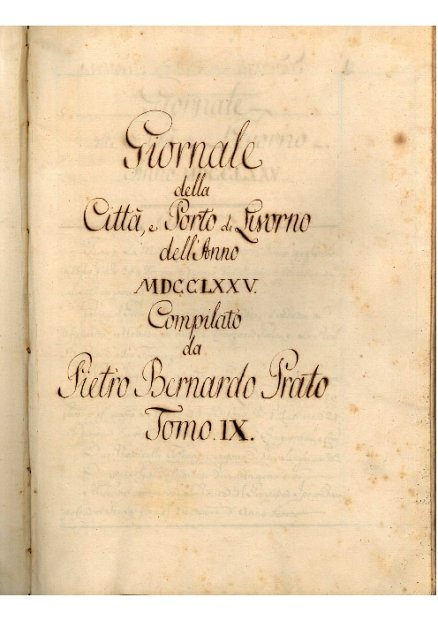 Giornale
della
Città, e Porto di Livorno
dell'Anno
MDCCLXXV.
Compilato
da
Pietro Bernardo Prato
Tomo. IX.